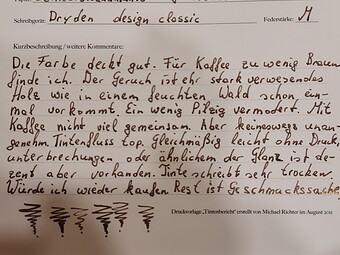 Schreibgerät: Dryden design classic Federstärke: M
Kurzbeschreibung / weitere Kommentare:
Die Farbe deckt gut. Für Kaffee zu wenig Braun
finde ich. Der Geruch ist ehr stark verwesendes
Holz wie in einem feuchten Wald schon ein-
mal vorkommt. Ein wenig Pilzig vermodert. Mit
Kaffee nicht viel gemeinsam. Aber keineswegs unan-
genehm. Tintenfluss top. Gleichmäßig leicht ohne Druck,
unterbrechungen oder ähnlichem der Glanz ist de-
zent aber vorhanden. Tinte schreibt sehr trocken.
Würde ich wieder kaufen. Rest ist Geschmackssache
Druckvorlage „Tintenbericht" erstellt von Michael Richter im August 2011